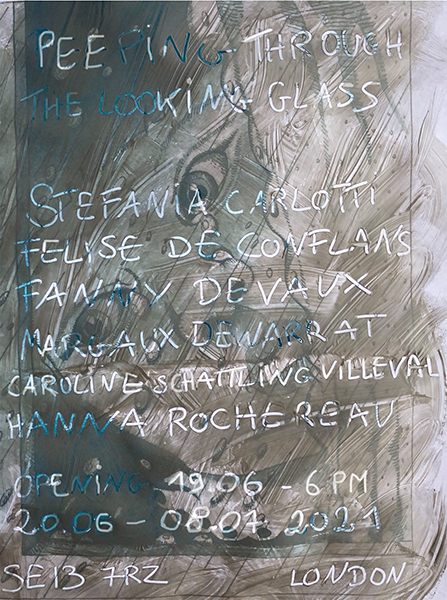 PEEPING THROUGH
THE LOOKING GLASS
STEFANIA CARLOTTI
FELISE DE CONFLANS
FANNY DEVAUX
MARGAUX DEWARRAT
CAROLINE SCHATTLING VILLEVAL
HANNA ROCHEREAU
OPENING 19.06 - 6 PM
20.06 - 08.07 2021
SE13 7RZ LONDON